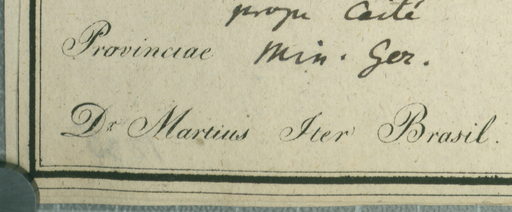 prope Caité
Provinciae Min. Ger.
Dr Martius Iter Brasil.